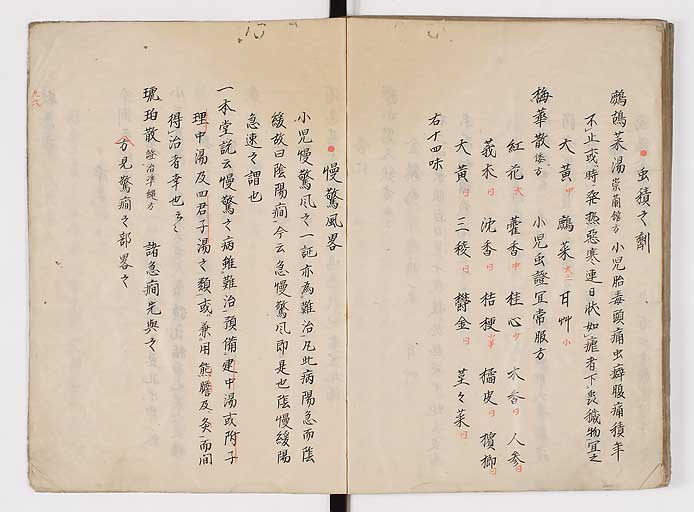 虫積之劑
鷓鴣菜湯 崇蘭館方 小児胎毒頭痛虫癖腹痛積年
不止或時発熱悪寒連日状如瘧者下喪穢物宜之
大黄 中 鷓菜 大 甘艸 小
梅華散 倭方 小児虫證宜常服方
紅花 大 藿香 中 桂心 少 木香 同 人参 同
莪朮 同 沈香 同 桔梗 橘皮 同 檳榔 同
大黄 同 三稜 同 欝金 同 茎々菜 同
右十四味
慢驚風畧
小児慢驚风之一証亦為難治凡此病陽急而陰
緩故曰陰陽癇今云急慢驚风即是也陰慢緩陽
急速之謂也
一本堂説云慢驚之病雖難治預備建中湯或附子
理中湯及四君子湯之類或兼用熊膽及灸而间
得治者幸也云々
琥珀散 證治準縄方 諸急癇先與之
方見驚癇之部畧之